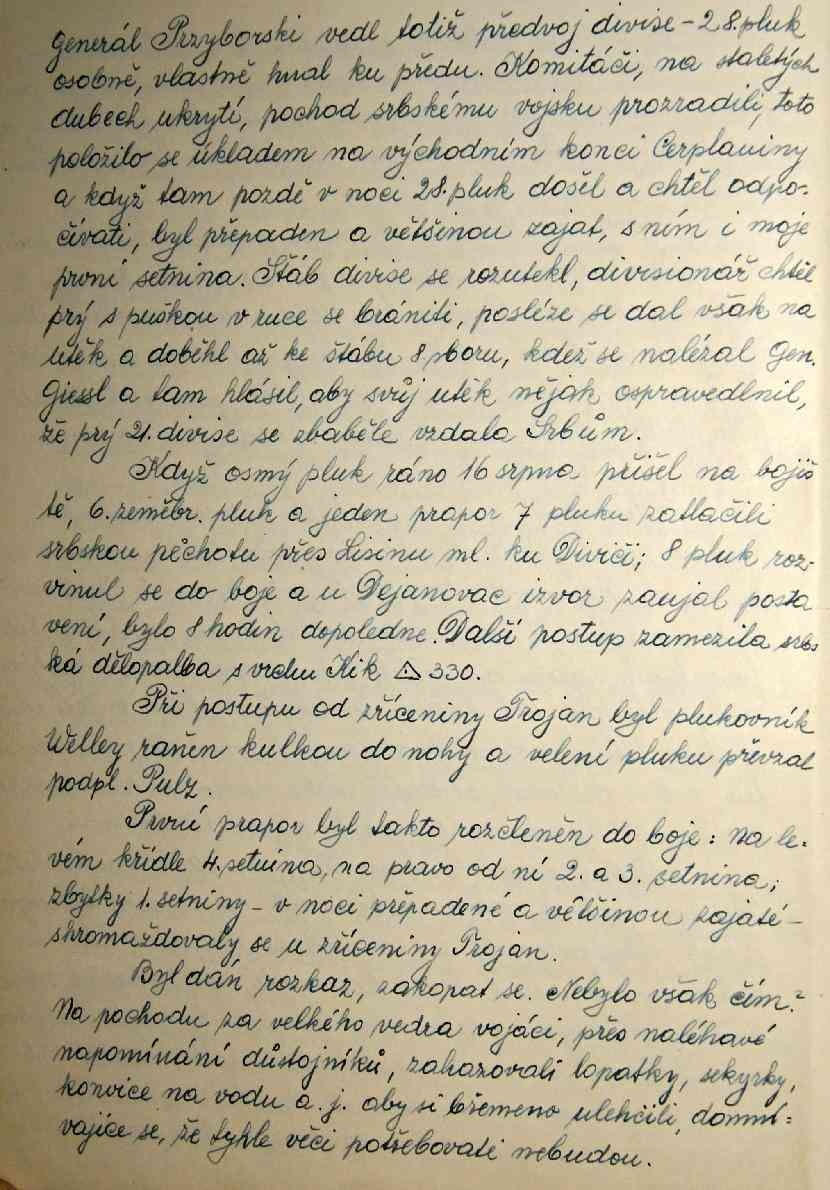 generál Przyborski vedl totiž předvoj divise – 28. pluk
osobně, vlastně hnal ku předu. Komitáči, na staletých
dubech ukrytí, pochod srbskému vojsku prozradili, toto
položilo se úkladem na východním konci Cerplaniny
a když tam pozdě v noci 28. pluk došel a chtěl odpo-
čívati, byl přepaden a většinou zajat, s ním i moje
první setnina. Štáb divise se rozutekl, divisionář chtěl
prý s puškou v ruce se brániti, posléze se dal však na
útěk a doběhl až ke štábu 8 sboru, kdež se nalézal Gen.
Giessl a tam hlásil, aby svůj utěk nějak ospravedlnil,
že prý 21. divise se zbaběle vzdala Srbům.
Když osmý pluk ráno 16 srpna přišel na bojiš
tě, 6. zeměbr. pluk a jeden prapor 7 pluku zatlačili
srbskou pěchotu přes Lisinu ml. ku Diviči; 8 pluk roz-
vinul se do boje a u Dejanovac izvor zaujal posta
vení, bylo 8 hodin dopoledne. Další postup zamezila srbs
ká dělopalba s vrchu Kik △ 330.
Při postupu od zříceniny Trojan byl plukovník
Welley raněn kulkou do nohy a velení pluku převzal
podpl. Pulz.
První prapor byl takto rozčleněn do boje: Na le-
vém křídle 4. setnina, na pravo od ní 2. a 3. setnina;
zbytky 1. setniny – v noci přepadené a většinou zajaté –
shromažďovaly se u zříceniny Trojan.
Byl dán rozkaz, zakopat se. Nebylo však čím?
Na pochodu za velkého vedra vojáci, přes naléhavé
napomínání důstojníků, zahazovali lopatky, sekyrky,
konvice na vodu a. j. aby si břemeno ulehčili, domní-
vajíce se, že tyhle věci potřebovati nebudou.